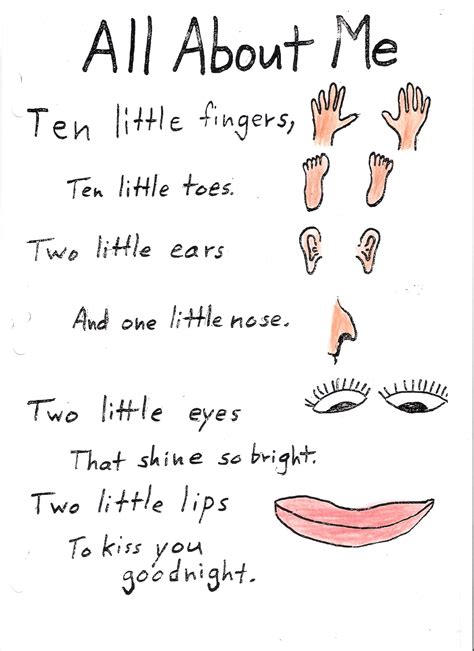 All About Me
Ten little fingers,
Ten little toes.
Two little ears
And one little nose.
Two little eyes
That shine so bright.
Two little lips
To kiss you
goodnight.